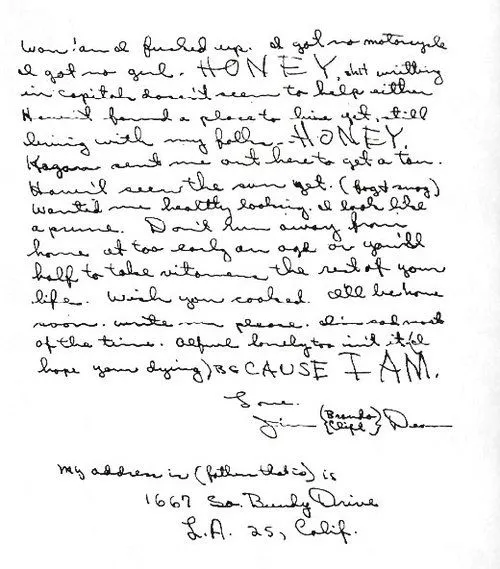 Wow! am I fucked up. I got no motorcycle
I got no girl. HONEY, shit writting
in capitals doesn't seem to help either
Haven't found a place to live yet. still
living with my folks. HONEY.
Kazan sent me out here to get a tan.
Haven't seen the sun yet. (fog & smog)
Wanted me healthy looking. I look like
a prune. Don't run away from
home at too early an age or you'll
half to take vitamens the rest of your
life. Wish you cooked. I'll be home
soon. write me please. I'm sad most
of the time. Awful lonely too isn't it (I
hope your dying) BECAUSE I AM.
Love.
Jim (Brando Clift) Dean
My address is (fathers that is) is
1667 So. Bundy Drive
L.A. 25, Calif.